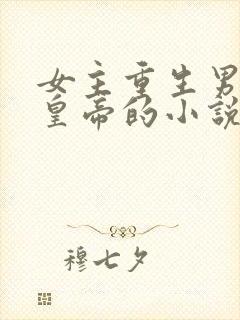 女主重生男
皇帝的小說
穆七夕